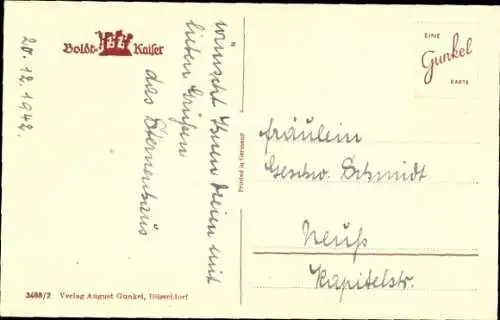 20.12.1942.
Boldt- Kaiser
wünscht Ihnen Dreien mit
lieben Grüßen
das Sternenhaus
EINE
Gunkel
KARTE
Printed in Germany
Fräulein
Geschw. Schmidt
Neuß
Kapitelstr.
3488/2 Verlag August Gunkel, Düsseldorf